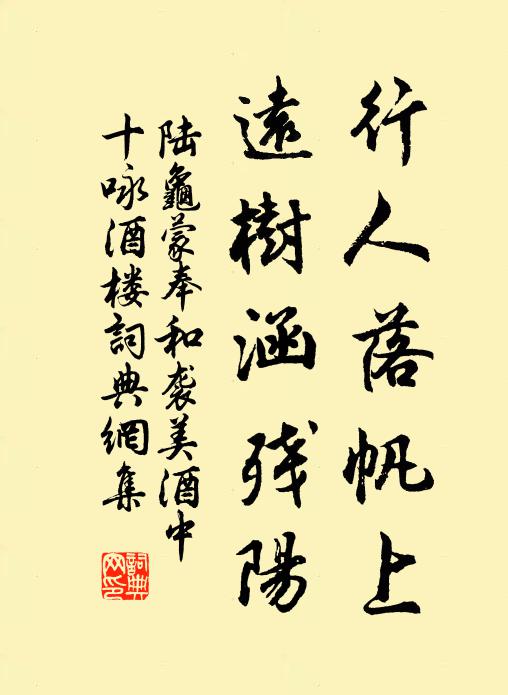 行人落帆上
遠樹涵残陽
陆龜蒙奉和袭美酒中
十咏酒楼詞典網集
詞典
网印